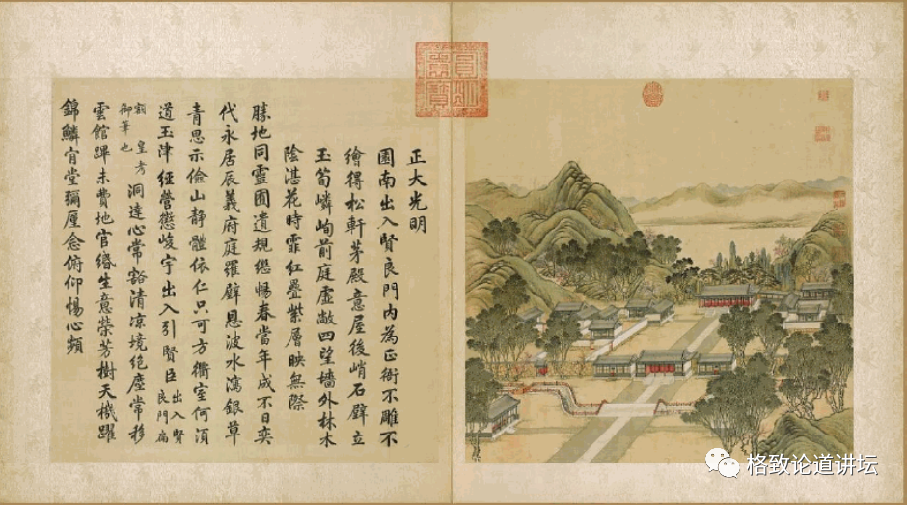 正大光明
園南出入賢良門內為正衙不雕不
繪得松軒茅殿意屋後峭石壁立
玉筍嶙峋前庭虛敞四望墻外林木
陰湛花時霏紅疊紫層映無際
勝地同靈囿遺規繼暢春當年成不日奕
代永居辰義府庭羅壁恩波水瀉銀草
青思示儉山靜體依仁只可方衢室何須
道玉津經營懲峻宇出入引賢臣出入賢良門扁
額皇考御筆也洞達心常豁清凉境絕塵常移
雲館蹕未費地官緡生意榮芳樹天機躍
錦鱗肯堂彌厪念俯仰惕心頻
格致论道讲坛